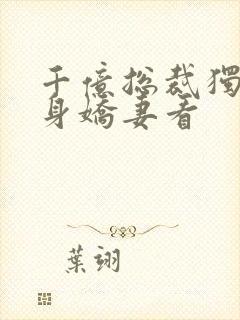 千億總裁獨
身嬌妻看
葉翊